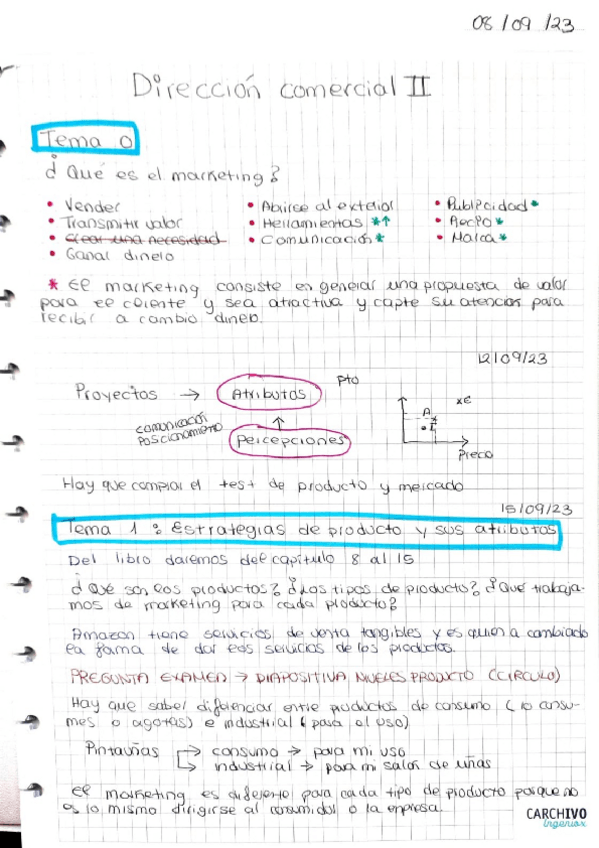 08/09/23
Dirección comercial II
Tema 0
¿Qué es el marketing?
• Vender • Abrirse al exterior • Publicidad *
• Transmitir valor • Herramientas *↑ • Precio *
• Crear una necesidad • Comunicación * • Marca *
• Ganar dinero
* El marketing consiste en generar una propuesta de valor
para el cliente y sea atractiva y capte su atención para
recibir a cambio dinero.
12/09/23
Proyectos → Atributos pto
comunicación
posicionamiento
↑
Percepciones
A
Precio
Hay que comprar el test de producto y mercado
15/09/23
Tema 1: Estrategias de producto y sus atributos
Del libro daremos del capítulo 8 al 15
¿Qué son los productos? ¿Los tipos de producto? ¿Qué trabaja-
mos de marketing para cada producto?
Amazon tiene servicios de venta tangibles y es quien a cambiado
la forma de dar los servicios de los productos.
PREGUNTA EXAMEN → DIAPOSITIVA NIVELES PRODUCTO (CIRCULO)
Hay que saber diferenciar entre productos de consumo (lo consu-
mes o agotas) e industrial (para el uso)
Pintauñas → consumo → para mi uso
→ industrial → para mi salon de uñas
El marketing es diferente para cada tipo de producto porque no
es lo mismo dirigirse al consumidor o la empresa.
CARCHIVO
ingeniox